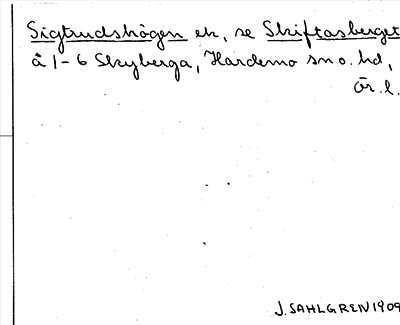 Sigtrudshögen ek, se Skiftasberget
å 1-6 Skyberga, Hardemo sn o. hd,
Ör. l.
J. SAHLGREN 1909